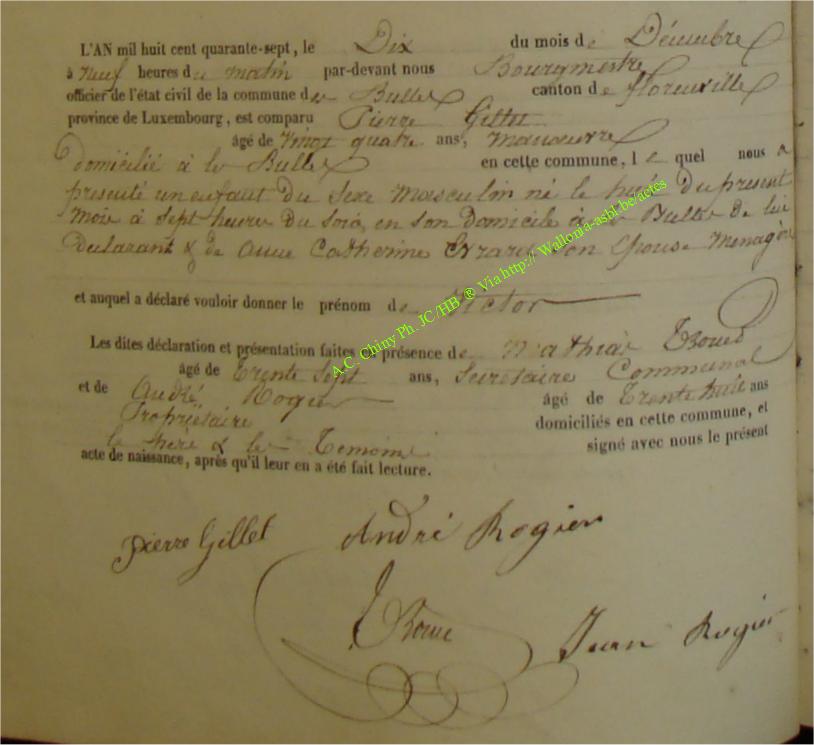 L'AN mil huit cent quarante-sept, le Dix du mois de Décembre
à Neuf heures du matin par-devant nous Bourgmestre
officier de l'état civil de la commune de Bulles canton de florenville
province de Luxembourg, est comparu Pierre Gillet
âgé de vingt quatre ans, manoeuvre
domicilié à Bulles en cette commune, le quel nous a
présenté un enfant du sexe masculin né le huit du présent
mois à sept heures du soir, en son domicile à Bulles de lui
Déclarant & de Anne Catherine son Epouse Menagère
et auquel a déclaré vouloir donner le prénom de Victor
Les dites déclaration et présentation faites en présence de Mathias
âgé de Trente Sept ans, Secrétaire Communal
et de André Rogier âgé de Trente huit ans
Propriétaire domiciliés en cette commune, et
le père & les Temoins signé avec nous le présent
acte de naissance, après qu'il leur en a été fait lecture.
pierre Gillet André Rogier
Jean Rogier
A.C. Chiny Ph. JC/HB ® Via http://Wallonia-asbl.be/actes